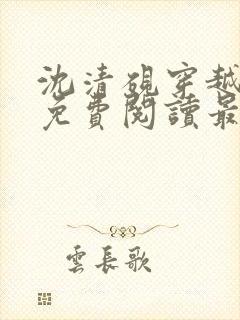 沈清硯穿越
免費閱讀最
雲長歌